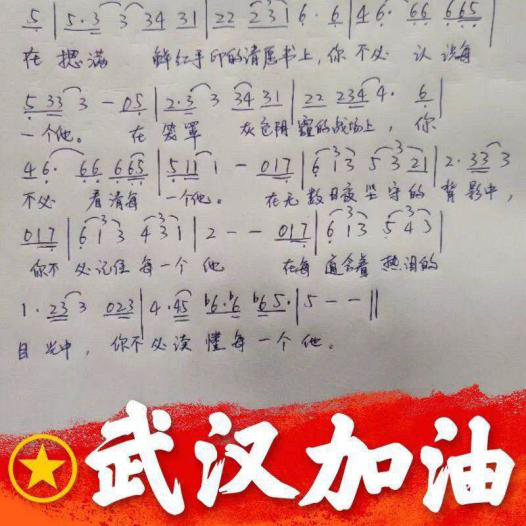 5 | 5·3 3 34 31 | 22 231 6·6 | 46· 66 665 |
在 摁满 鲜红手印的请愿书上,你 不必 认识每
5 33 3 - 05 | 2·3 3 34 31 | 22 234 4· 6 |
一个他。 在 笼罩 灰色阴霾的战场上,你
46· 66 665 | 511 1 - 017 | 613 5321 | 2·33 3
不必 看清每 一个他。 在无数日夜坚守的 背影中,
017 | 613 431 | 2 - - 017 | 613 543 |
你不必记住每一个他 在每 道含着 热泪的
1·23 3 023 | 4·45 b6·b6 b65· | 5 - - ||
目光中, 你不必读 懂每一个他。
武汉加油